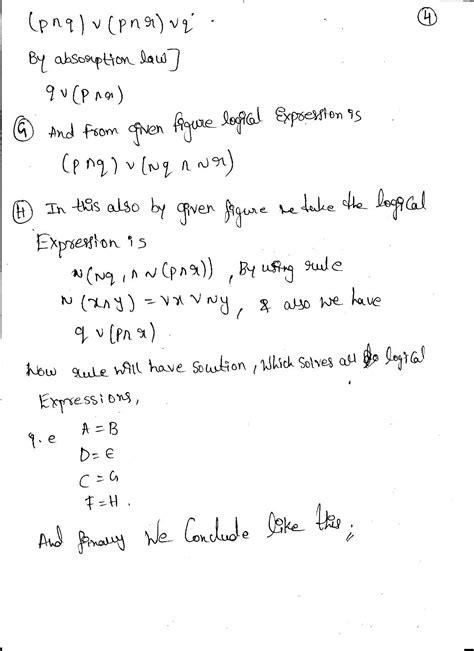 (p∧q) ∨ (p∧r) ∨ q. ④
By absorption law]
q ∨ (p∧r)
Ⓖ And from given figure logical Expression is
(p∧q) ∨ (~q ∧ ~r)
Ⓗ In this also by given figure we take the logical
Expression is
~(~q, ∧ ~(p∧r)) , By using rule
~(x∧y) = ~x ∨ ~y, & also we have
q ∨ (p∧r).
Now rule will have soution, which solves all logical
Expressions,
i.e A = B
D = E
C = G
F = H.
And finaly we Conclude like this;